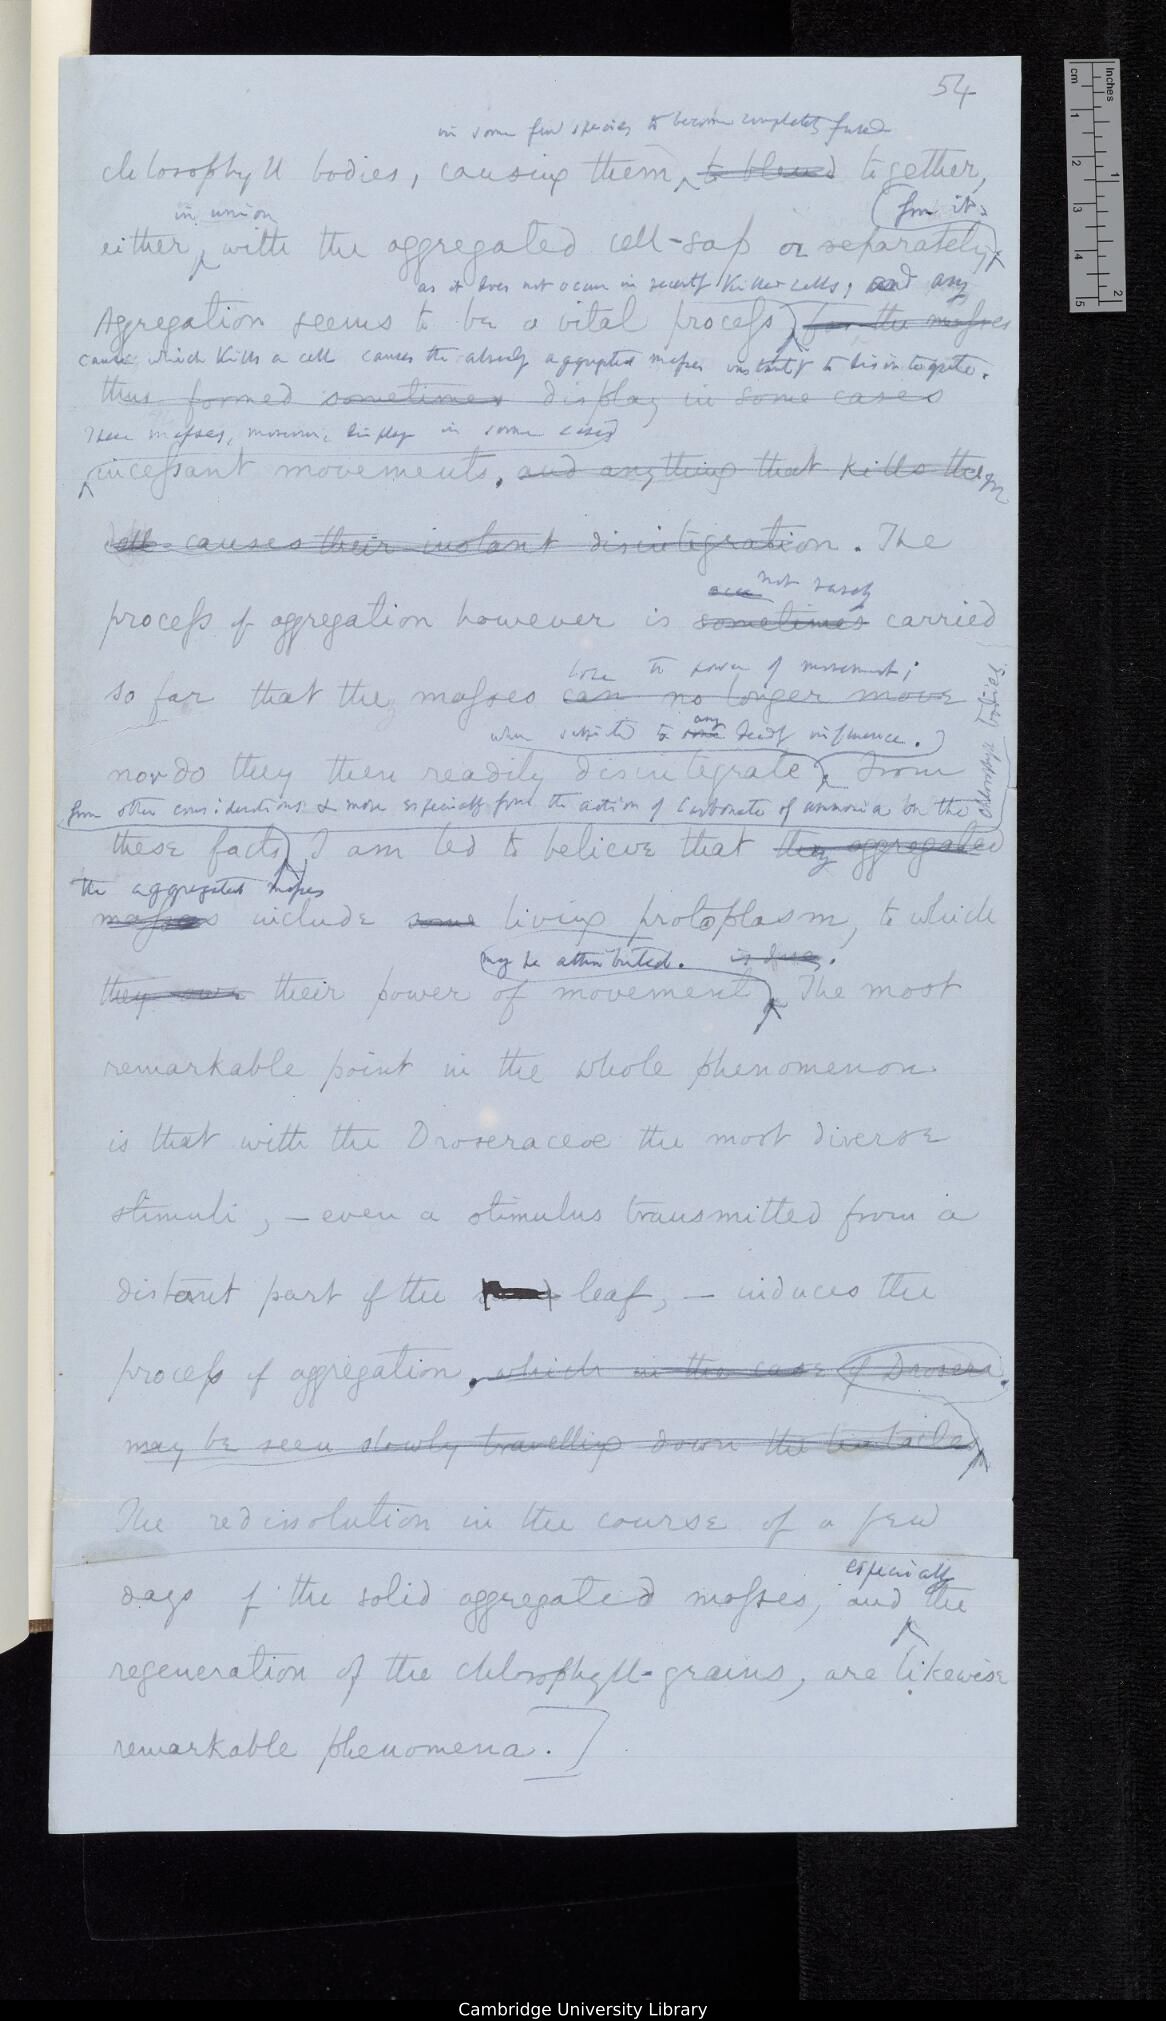 54
in some few species to become completely fused
chlorophyll bodies, causing them to blend together,
in union
(from it.
either with the aggregated cell-sap or separately.
as it does not occur in recently killed cells; and any
Aggregation seems to be a vital process, for the masses
cause which kills a cell causes the already aggregated masses instantly to disintegrate.
thus formed sometimes display in some cases
These masses, moreover, display in some cases
incessant movements, and anything that kills the
cell causes their instant disintegration. The
not rarely
process of aggregation however is sometimes carried
lose the power of movement;
so far that the masses can no longer move
when subjected to some any deadly influence.)
nor do they then readily disintegrate. From
from other considerations & more especially from the action of Carbonate of ammonia on the
chlorophyll bodies
these facts, I am led to believe that they aggregated
the aggregated masses
masses include some living protoplasm, to which
may be attributed. is due.
they owe their power of movement. The most
remarkable point in the whole phenomenon
is that with the Droseraceæ the most diverse
stimuli, – even a stimulus transmitted from a
distant part of the leaf, – induces the
process of aggregation, which in the case of Drosera.
may be seen slowly travelling down the tentacles
The redissolution in the course of a few
especially
days of the solid aggregated masses, and the
regeneration of the chlorophyll-grains, are likewise
remarkable phenomena.]
cm
Inches
1
2
3
4
5
1
2
Cambridge University Library